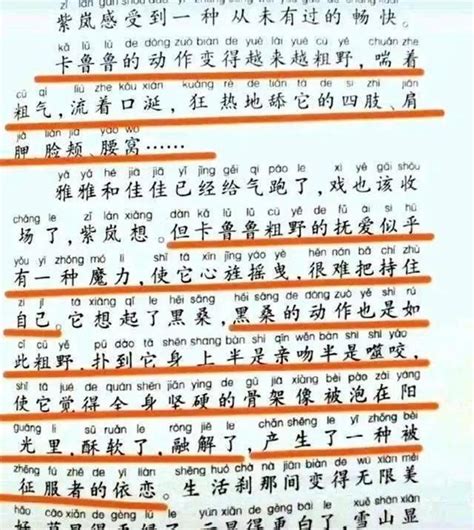 紫岚感受到一种从未有过的畅快。
kǎ lǔ lǔ de dòng zuò biàn de yuè lái yuè cū yě chuǎn zhe
卡鲁鲁的动作变得越来越粗野,喘着
cū qì liú zhe kǒu xián kuáng rè de tiǎn tā de sì zhī jiān
粗气,流着口涎,狂热地舔它的四肢、肩
jiǎ liǎn jiá yāo wō
胛、脸颊、腰窝……
yǎ yǎ hé jiā jiā yǐ jīng gěi qì pǎo le xì yě gāi shōu
雅雅和佳佳已经给气跑了,戏也该收
chǎng le zǐ lán xiǎng dàn kǎ lǔ lǔ cū yě de fǔ ài sì hū
场了,紫岚想。但卡鲁鲁粗野的抚爱似乎
yǒu yì zhǒng mó lì shǐ tā xīn jīng yáo yè hěn nán bǎ chí zhù
有一种魔力,使它心旌摇曳,很难把持住
zì jǐ tā xiǎng qǐ le hēi sāng hēi sāng de dòng zuò yě shì rú
自己。它想起了黑桑,黑桑的动作也是如
cǐ cū yě pū dào tā shēn shang bàn shì qīn wěn bàn shì shì yǎo
此粗野,扑到它身上半是亲吻半是噬咬,
shǐ tā jué de quán shēn jiān yìng de gǔ jià xiàng bèi pào zài yáng
使它觉得全身坚硬的骨架像被泡在阳
guāng li sū ruǎn le róng jiě le chǎn shēng le yì zhǒng bèi
光里,酥软了,融解了,产生了一种被
zhēng fú zhě de yī liàn shēng huó chà nà jiān biàn de wú xiàn měi
征服者的依恋。生活刹那间变得无限美
hǎo cǎo xiǎn de gèng lǜ le yún xiǎn de gèng bái le xuě shān xiǎn